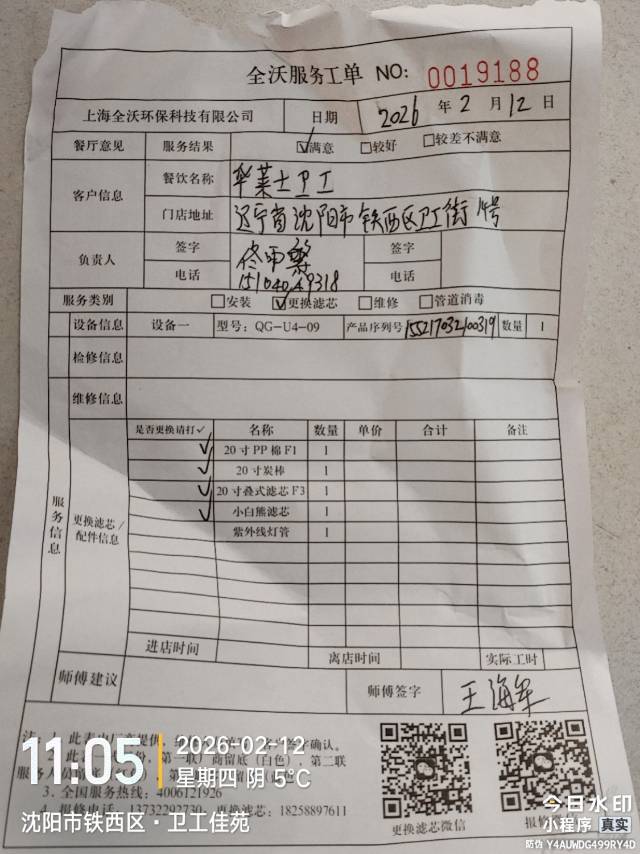 全沃服务工单 NO: 0019188
上海全沃环保科技有限公司 日期 2026 年 2 月 12 日
餐厅意见 服务结果 ☑满意 □较好 □较差不满意
客户信息 餐饮名称 华莱士卫工
门店地址 辽宁省沈阳市铁西区卫工街 号
负责人 签字 签字
电话 15104049318 电话
服务类别 □安装 ☑更换滤芯 □维修 □管道消毒
设备信息 设备一 型号: QG-U4-09 产品序列号 155217032100319 数量 1
检修信息
维修信息
服务信息
更换滤芯/配件信息
是否更换请打✓ 名称 数量 单价 合计 备注
✓ 20寸PP棉F1 1
✓ 20寸炭棒 1
✓ 20寸叠式滤芯F3 1
✓ 小白熊滤芯 1
紫外线灯管 1
进店时间 离店时间 实际工时
师傅建议 师傅签字 王海军
注: 1. 此表由 提供, 签字确认。
2. 此 份, 第一联 商留底(白色), 第二联
服务人员 第
3. 全国服务热线: 4006121926
4. 报修电话: 13732292730 更换滤芯: 18258897611
更换滤芯微信
报修
11:05
2026-02-12
星期四 阴 5℃
沈阳市铁西区·卫工佳苑
今日水印
小程序 真实
防伪 Y4AUWDG499RY4D